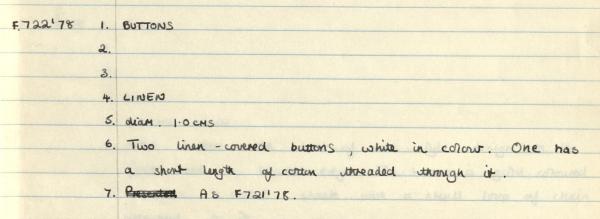 F.722'78 1. BUTTONS
2.
3.
4. LINEN
5. diam. 1.0 CMS
6. Two linen-covered buttons, white in colour. One has
a short length of cotton threaded through it.
7. Presented AS F721'78.